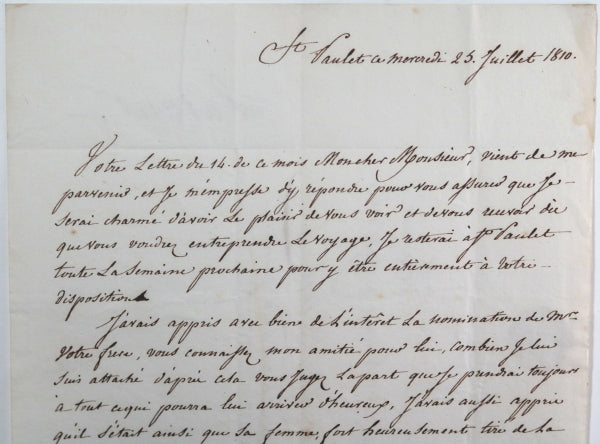 St Paulet ce mercredi 25 Juillet 1810.
Votre Lettre du 14. de ce mois Moncher Monsieur, vient de me
parvenir, et Je m'empresse d'y répondre pour vous assurer que Je
serai charmé d'avoir Le plaisir de vous voir et de vous recevoir dès
que vous voudrez entreprendre Le voyage, Je resterai à St Paulet
toute La Semaine prochaine pour y être entierment à votre
disposition
J'avais appris avec bien de L'intérêt La nomination de Mr.
Votre frere, vous connaissez mon amitié pour lui, combien Je lui
suis attaché d'après cela vous Jugez La part que Je prendrai toujours
à tout ce qui pourra lui arriver d'heureux, J'avais aussi appris
qu'il s'était ainsi que sa femme, fort heureusement tiré de La